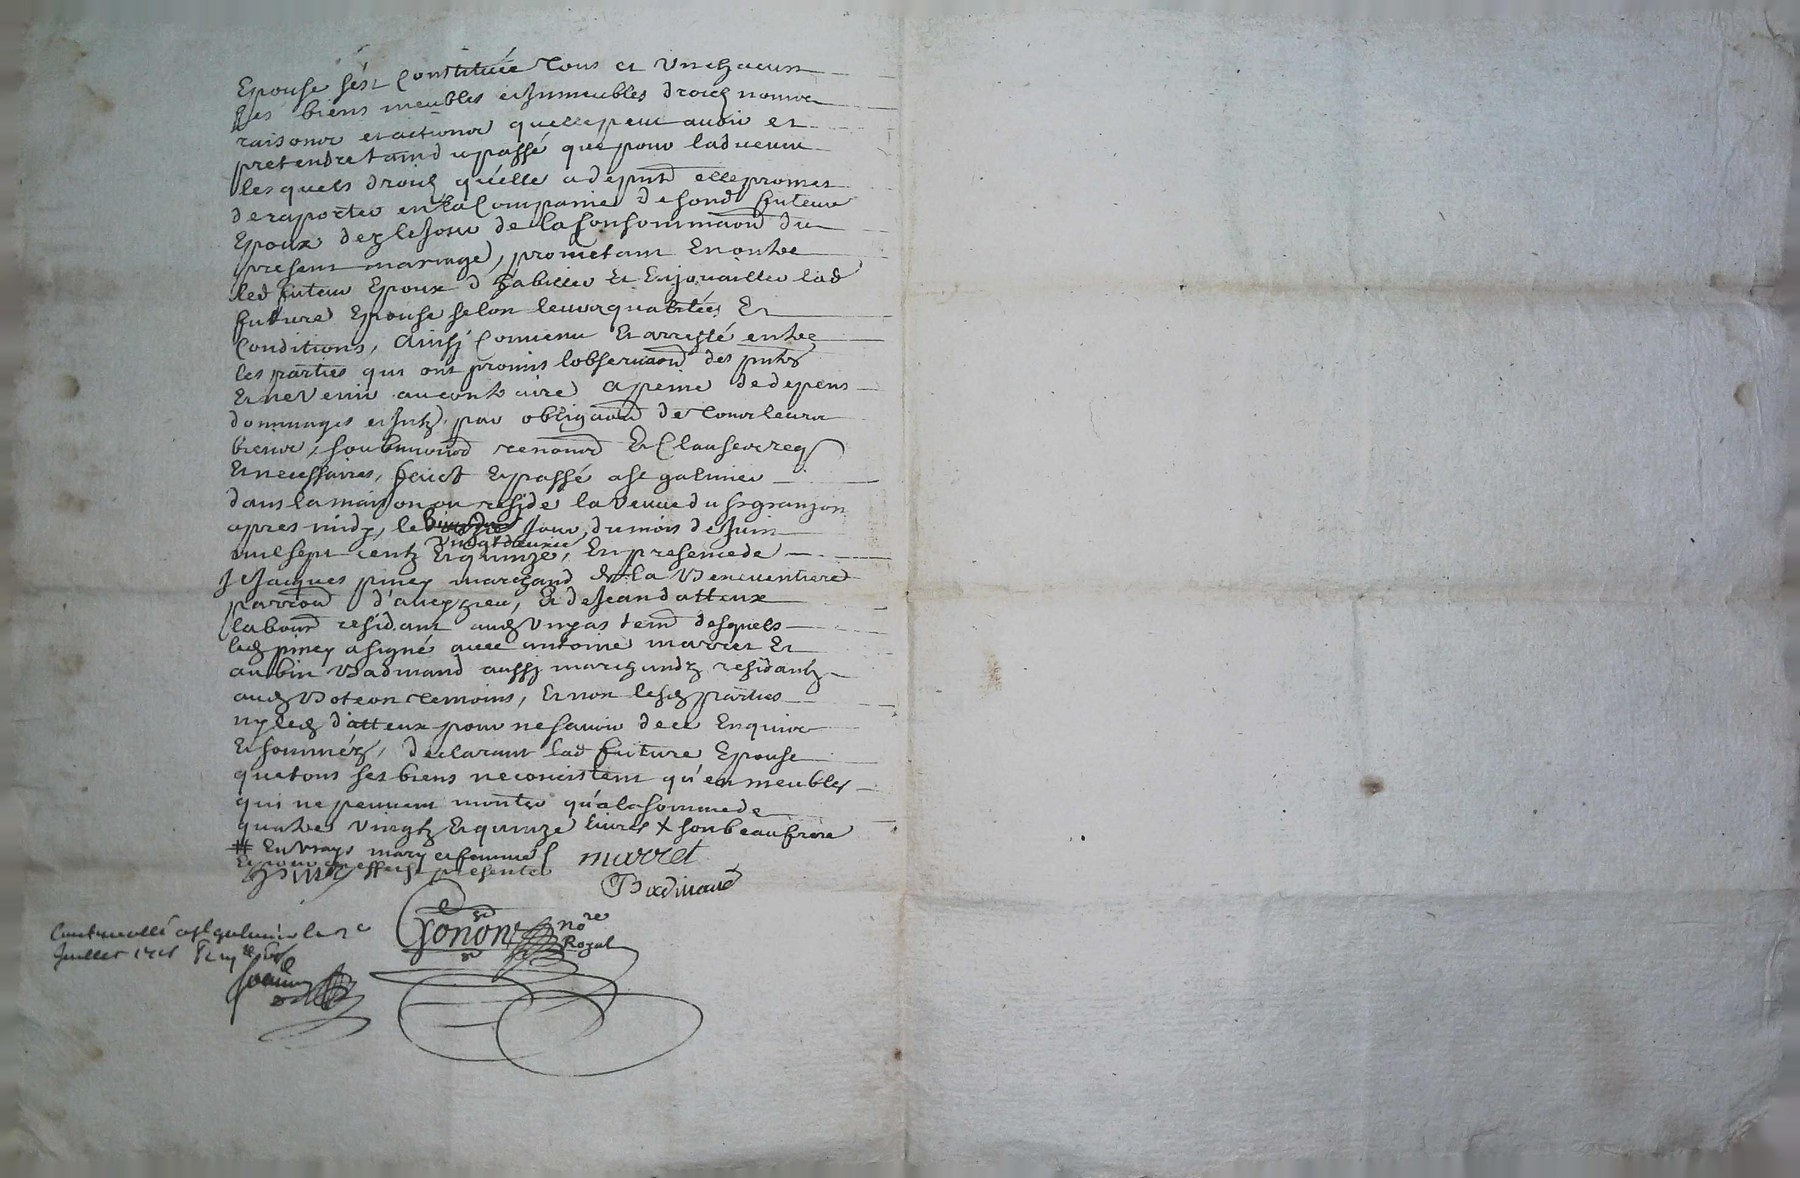 Epouse s'est Constituée tous et Un chacuns
Ses biens meubles et Jmmeubles droicts noms
raisons et actions quelle peut avoir et
pretendre tamd u passé que pour ladvenir
les quels droicts qu'elle a dep̄nt elle promet
de raporter en la Companie de sond futeur
Epoux dez le Jour de la Consommaōn du
present mariage, prometant En outre
led futeur Epoux d'habiller Et Enjouailler lad
future Epouse selon leurs qualités Et
Conditions, Ainsj Convenu Et arresté entre
les parties qui ont promis lobservaōn des pn̄tes
Et ne Venir au contraire a peine de depens
dommages et Jntz. par obligaōn de tous leurs
biens, soubmissōn renonōn Et Clauses req
Et necessaires, faict Et passé a St galmier
dans la maison ou reside la Veuve du Sr granjon
apres midy, le Vingt deuxie Jour, du mois de Juin
mil sept centz Et quinze, En presence de
Sr Jacques piney marchand de la Beneventiere
parroisse d'aveyzieu, Et de Jean datteux
labour residant aud Unjas tem desquels
led piney a signé avec antoine marret Et
aubin Badinand aussj marchandz residantz
aud Boteon temoins, Et non lesd parties
ny led d'atteux pour ne savoir de ce Enquis
Et sommés, declarant lad future Epouse
que tous ses biens ne concistent qu'en meubles
qui ne peuvent monter qu'a la somme de
quatre Vingtz Et quinze livres X son beaufrere
# En Vrays mary et femme
Et pour cet effect presente
Piney
marret
Badinand
Gonon nore
Royal
Controollé a St galmier le 2e
Juillet 1715